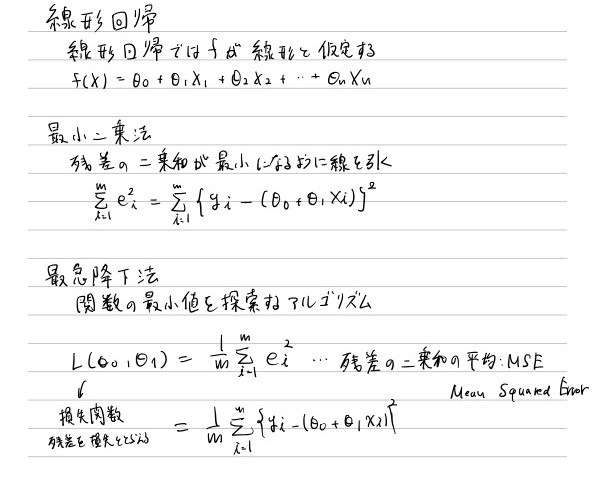 線形回帰
線形回帰ではfが線形と仮定する
f(X) = θ0 + θ1X1 + θ2X2 + … + θnXn
最小二乗法
残差の二乗和が最小になるように線を引く
∑_{i=1}^{m} e_i^2 = ∑_{i=1}^{m} {yi − (θ0 + θ1Xi)}^2
最急降下法
関数の最小値を探索するアルゴリズム
L(θ0, θ1) = 1/m ∑_{i=1}^{m} e_i^2 … 残差の二乗和の平均: MSE
Mean Squared Error
↓
損失関数
残差を損失ととらえる
= 1/m ∑_{i=1}^{m} {yi − (θ0 + θ1xi)}^2